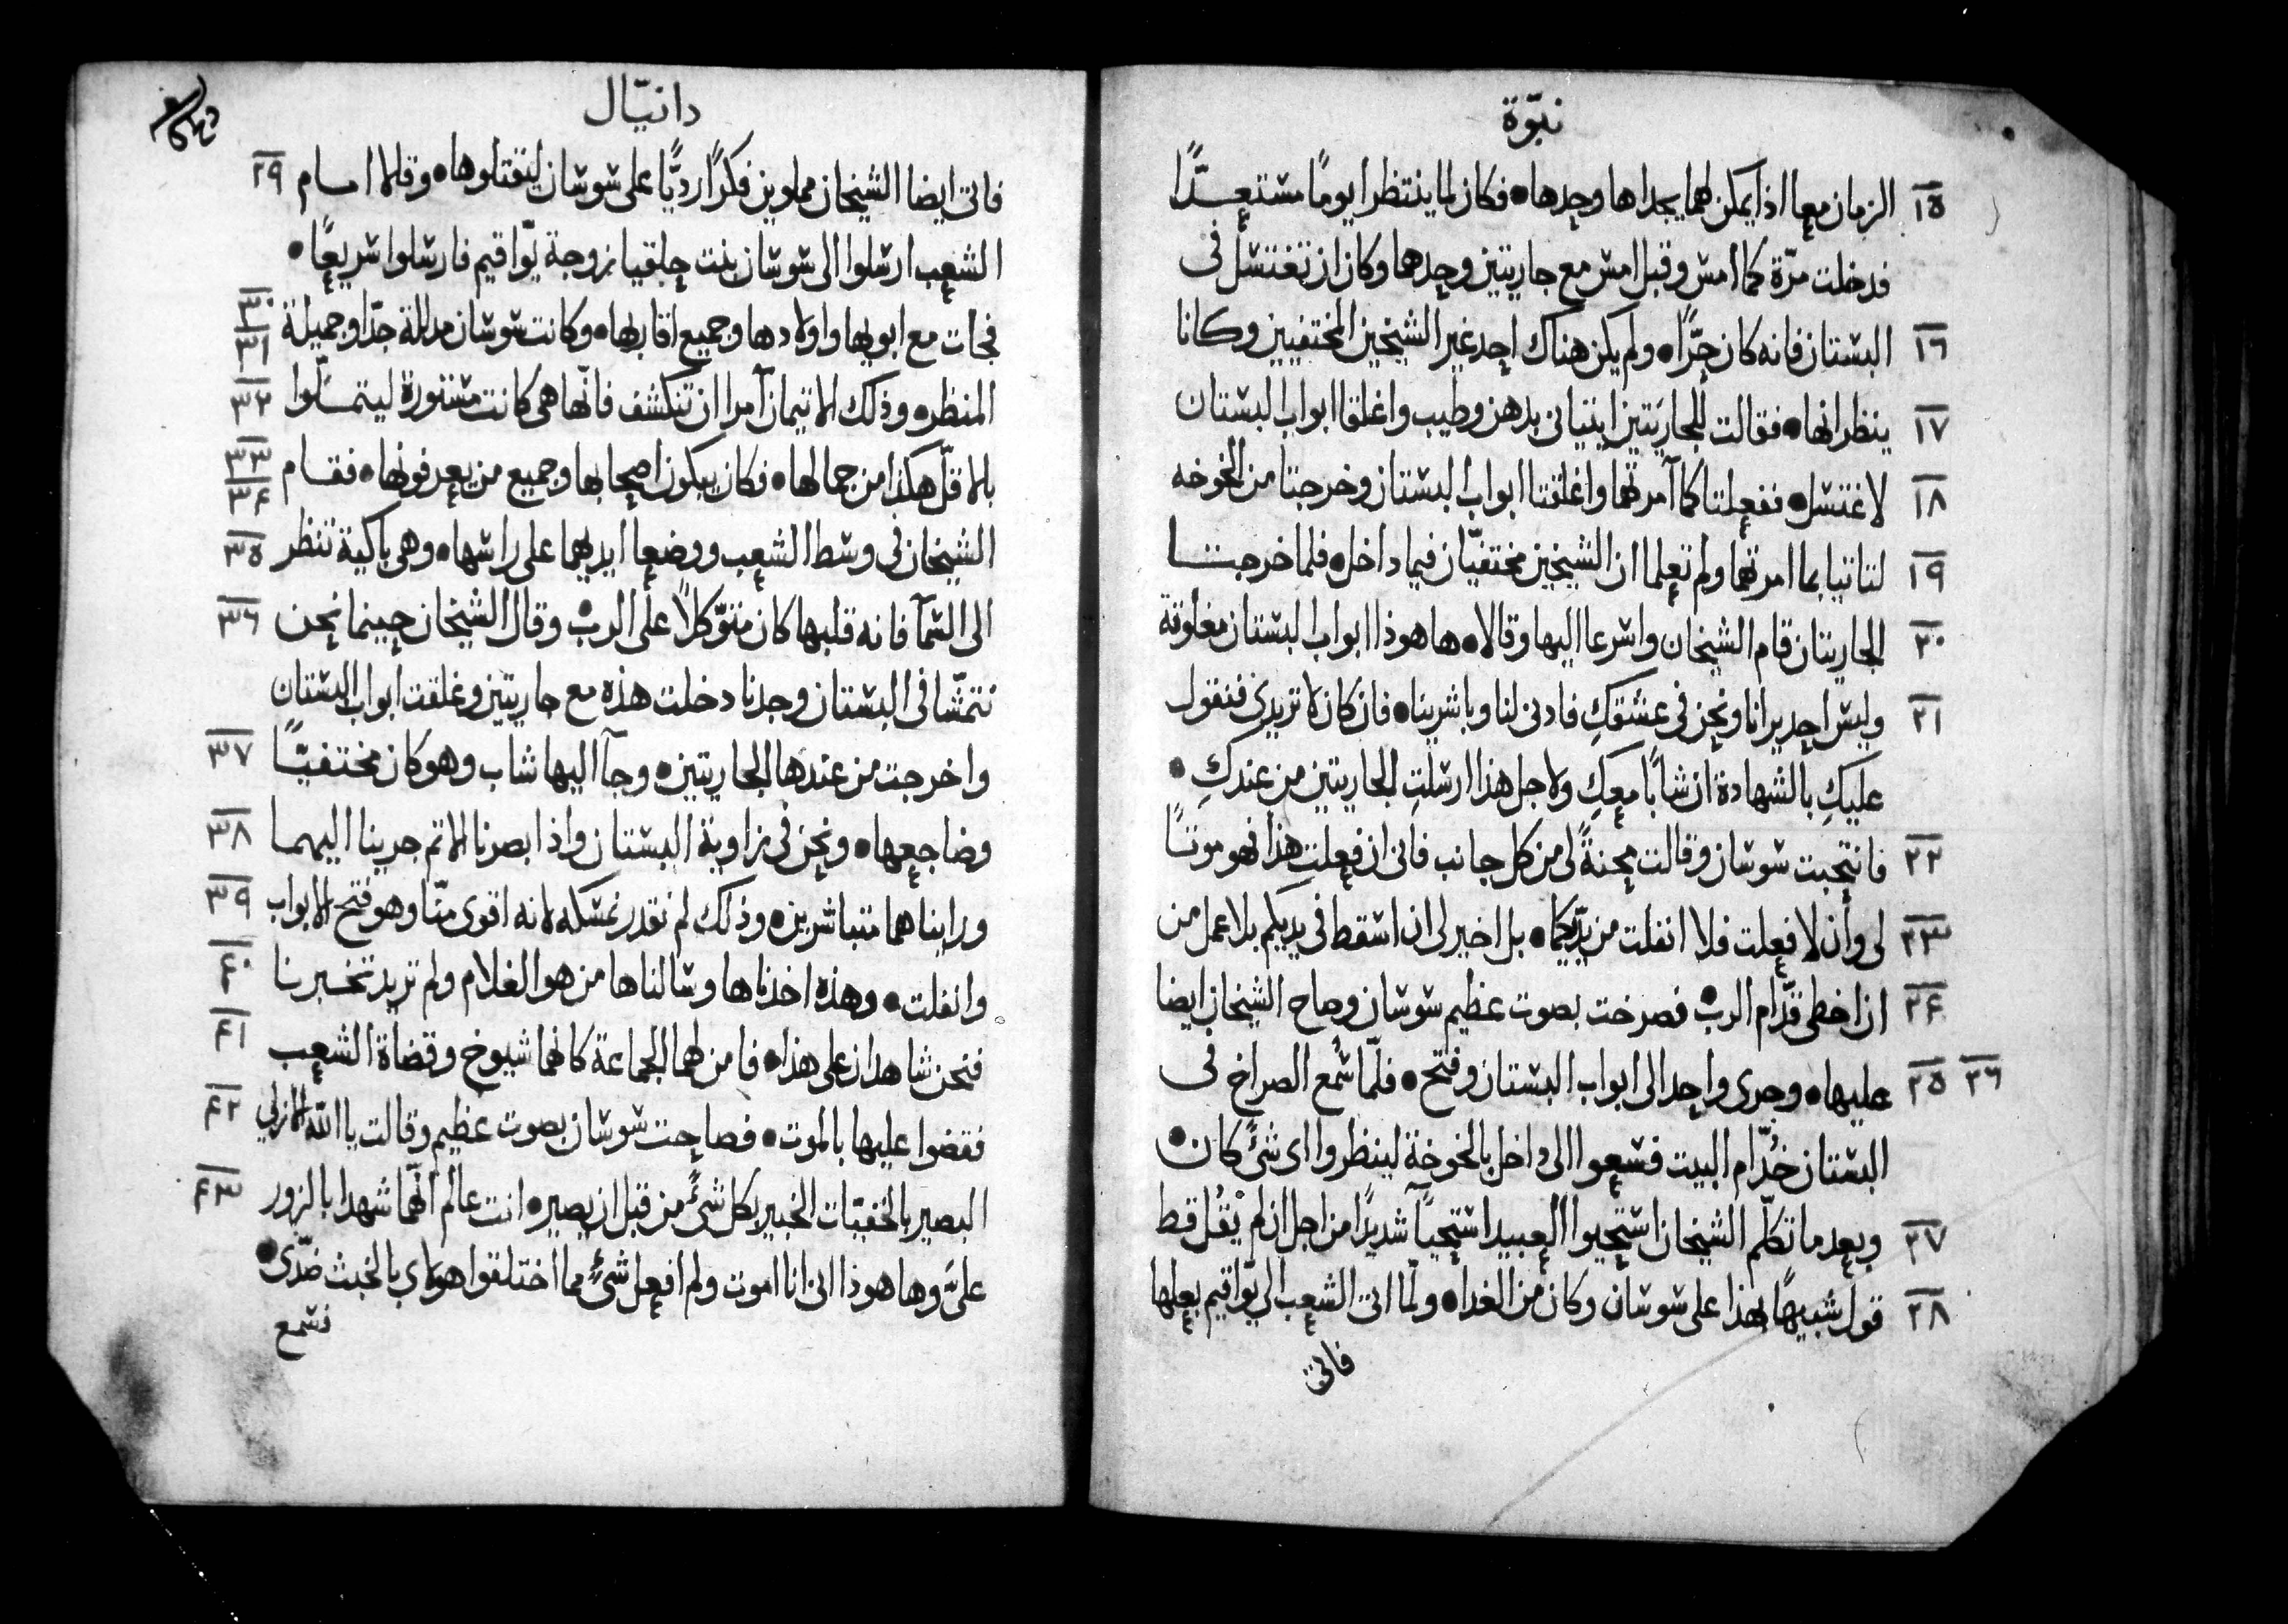 نبوّة
١٥ الزمان معا اذا يمكن لهما يجداها وحدها • فكان لما ينتظرا يومًا مستعدًّا
فدخلت مرّة كما امس وقبل امس مع جاريتين وحدهما وكان ان تغتسل فى
١٦ البستان فانه كان حرًّا • ولم يكن هناك احد غير الشيخين المختفيين وكانا
١٧ ينظرانها • فقالت للجاريَتين ايتيانى بدهن وطيب واغلقا ابواب البستان
١٨ لاغتسل • ففعلتا كما آمرتهما واغلقتا ابواب البستان وخرجتا من الخوخه
١٩ لتاتيا بما امرتهما ولم تعلما ان الشيخين مختفيّان فيما داخل • فلما خرجتا
٢٠ الجاريتان قام الشيخان واسرعا اليها وقالا • ها هوذا ابواب البستان مغلوقة
٢١ وليس احد يرانا ونحن فى عشقكِ فادنى لنا وباشرينا • فان كان لا تريدى فنقول
عليكِ بالشهادة ان شابًا معكِ ولاجل هذا ارسلتِ الجاريتين من عندكِ •
٢٢ فانتحبت سوسان وقالت محنةً لى من كل جانب فانى ان فعلت هذا فهو موتًا
٢٣ لى وأن لا فعلت فلا انفلت من يدَيكما • بل اخير لى ان اسقط فى يديكم بلا عمل من
٢٤ ان اخطى قدّام الرب • فصرخت بصوت عظيم سوسان وصاح الشيخان ايضا
٢٥ ٢٦ عليها • وجرى واحد الى ابواب البستان وفتح • فلمّا سُمع الصراخ فى
البستان خُدّام البيت فسعوا الى داخل بالخوخة لينظروا اى شئ كان •
٢٧ وبعد ما تكلّم الشيخان استحيوا العبيد استحيآ شديدًا من اجل ان لم يُقْل قط
٢٨ قول شبيهًا بهذا على سوسان وكان من الغد • ولمّا اتى الشعب الى يوّاقيم بعلها
فاتى
دانيّال
فاتى ايضا الشيخان مملوين فكرًا رديًّا على سوسان ليقتلوها • وقالا امام ٢٩
الشعب ارسلوا الى سوسان بنت حلقيا زوجة يوّاقيم فارسلوا سريعًا •
فجات مع ابويها واولادها وجميع اقاربها • وكانت سوسان مدللة جدّا وجميلة ٣٠ ٣١
المنظر • وذلك الاتيمان آمرا ان تنكشف فانّها هى كانت مستورة ليتملّوا ٣٢
بالاقلّ هكذا من جمالها • فكان يبكون اصحابها وجميع من يعرفونها • فقام ٣٣ ٣٤
الشيخان فى وسط الشعب ووضعا ايديهما على راسها • وهى باكية تنظر ٣٥
الى السّمآ فانه قلبها كان متوّكلًا على الرب • وقال الشيخان حينما نحن ٣٦
نتمشّا فى البستان وحدنا دخلت هذه مع جاريتين وغلقت ابواب البستان
واخرجت من عندها الجاريتين • وجآ اليها شاب وهو كان مختفيًّا ٣٧
وضاجعها • ونحن فى زاوية البستان واذا بصرنا الاثم جرينا اليهما ٣٨
ورايناهما متباشرين • وذلك لم نقدر نمسكه لانه اقوى منّا وهو فتح الابواب ٣٩
وانفلت • وهذه اخذناها وسالناها من هو الغلام ولم تريد تخبرنا ٤٠
فنحن شاهدان على هذا • فامن لهما الجماعة كانهما شيوخ وقضاة الشعب ٤١
فقضوا عليها بالموت • فصاحت سوسان بصوت عظيم وقالت يا اللّه الازلي ٤٢
البصير بالخفيّات الخبير بكل شئ من قبل ان يصير • انت عالم انّهما شهدا بالزور ٤٣
علىَّ وها هوذا انى انا اموت ولم افعل شئ مما اختلقوا هولاى بالخبث ضدّى •
فسمع